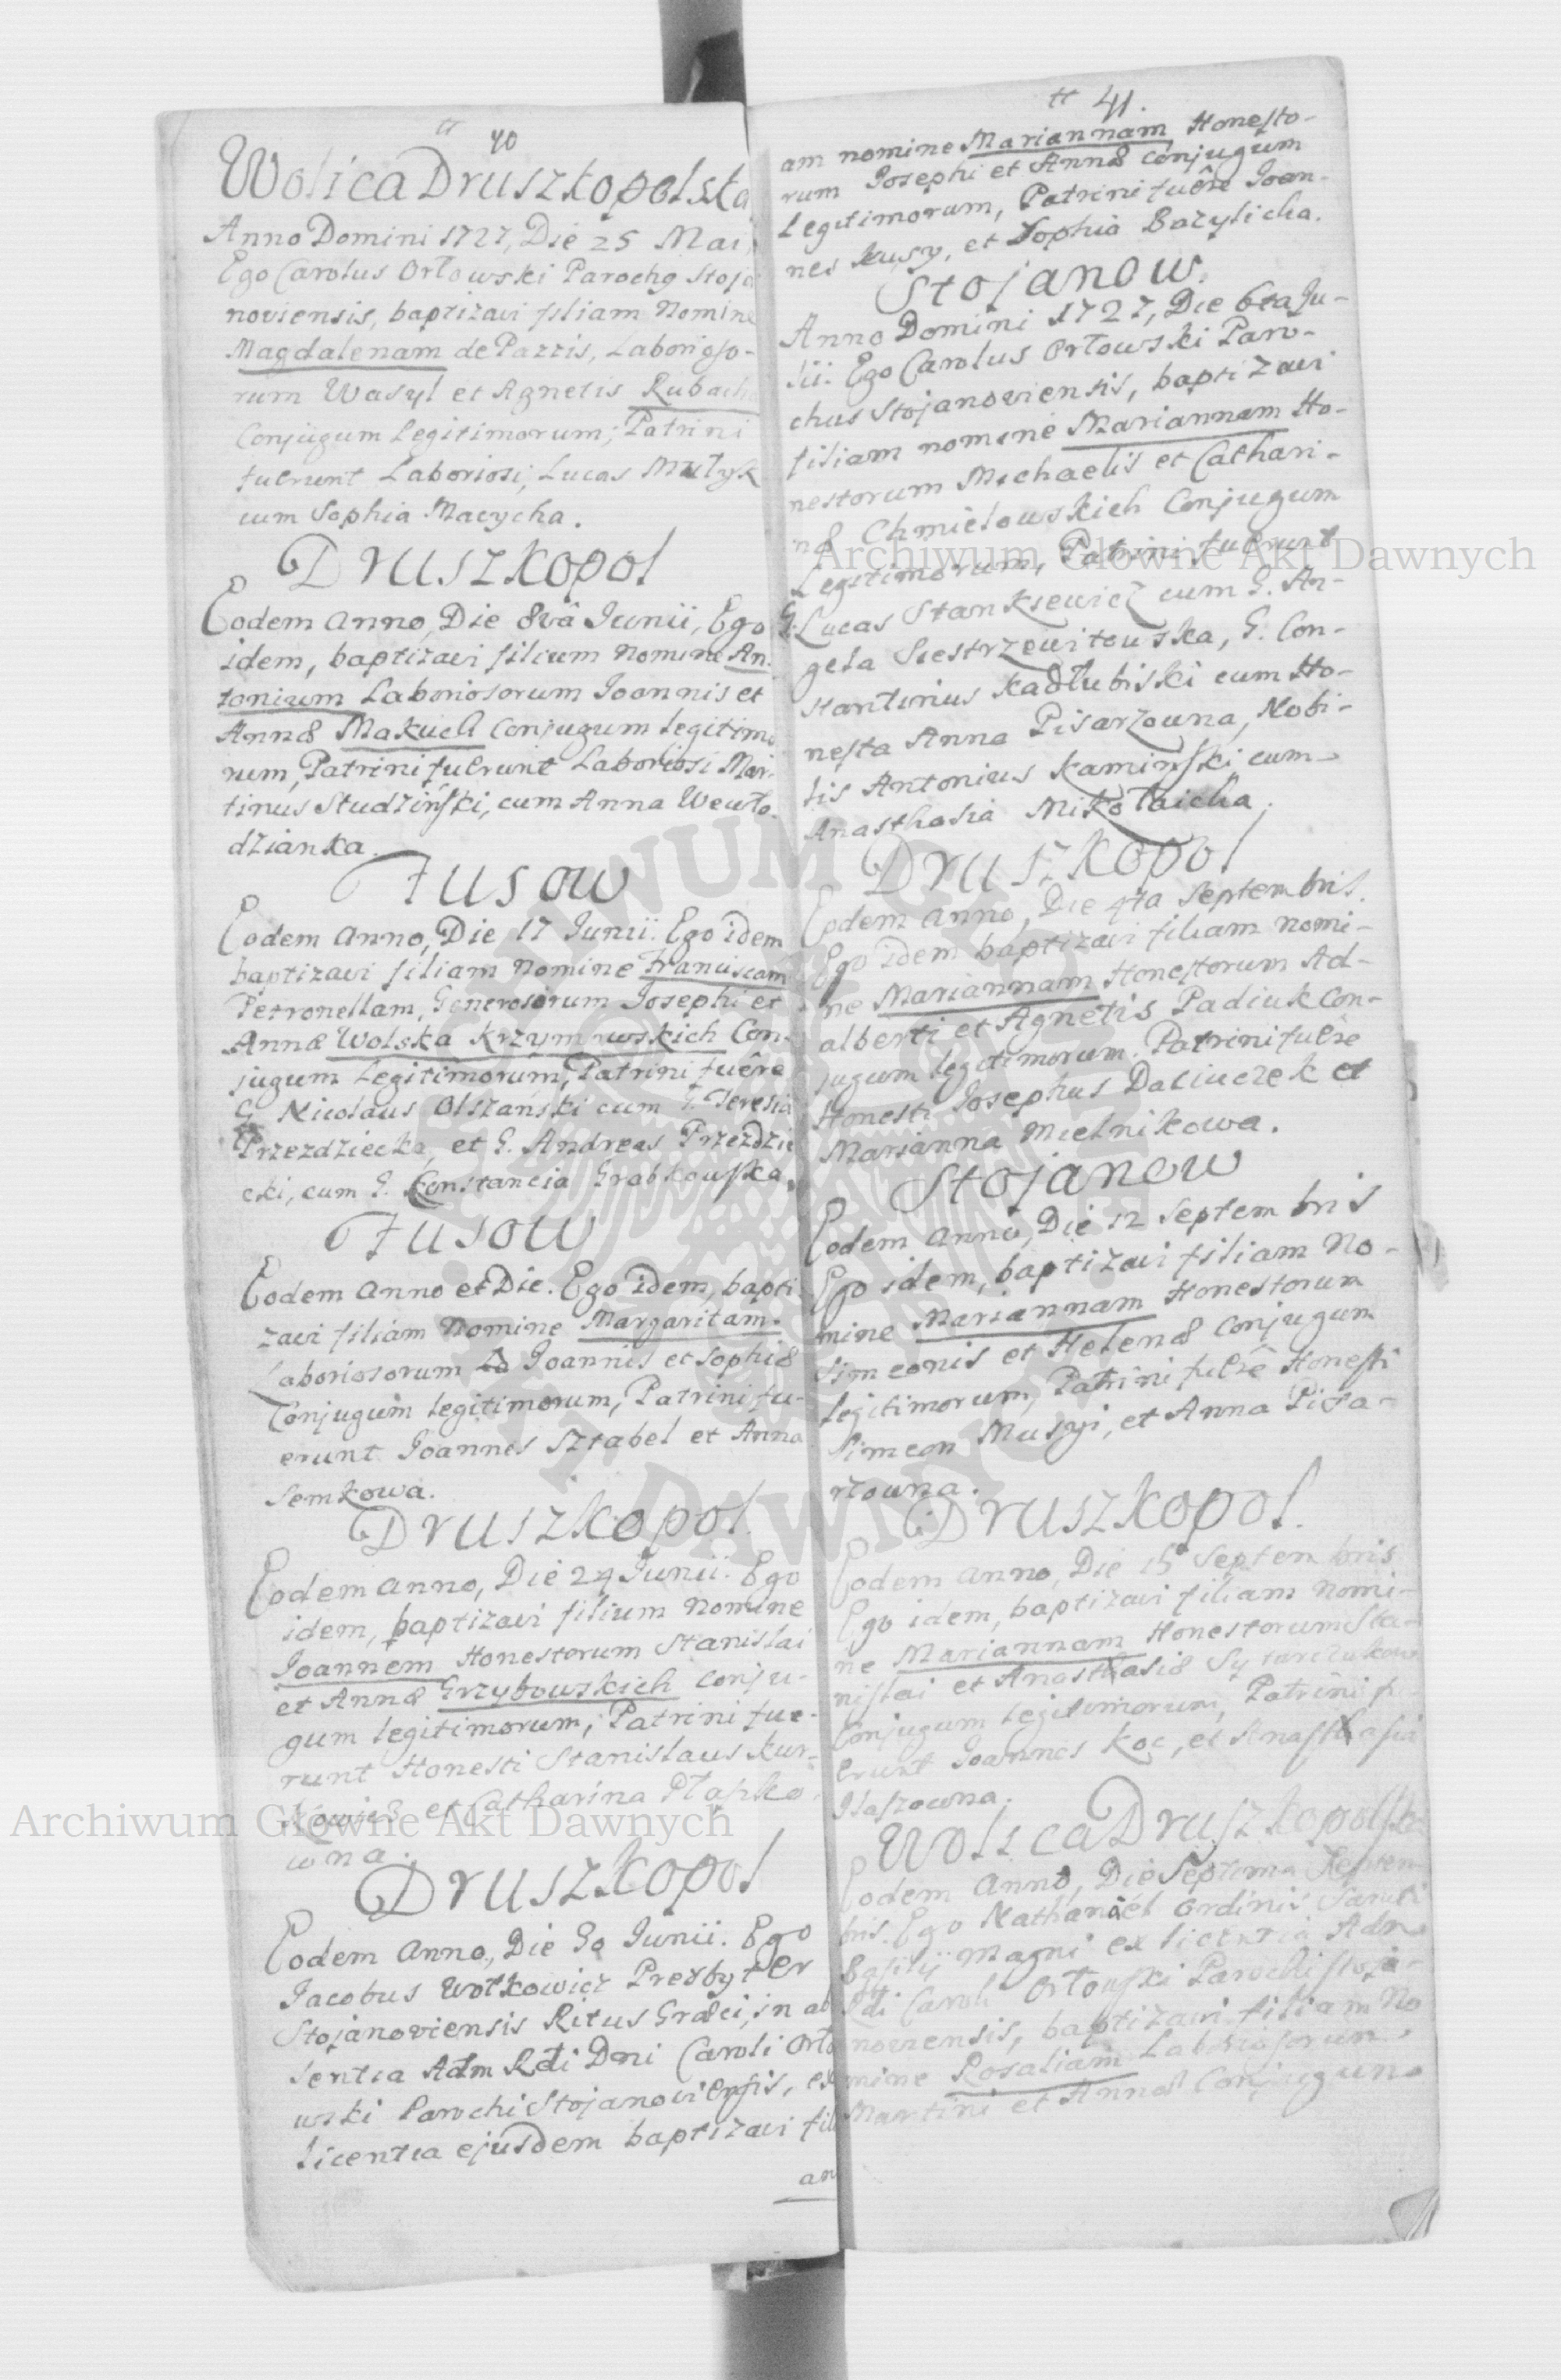 40
Wolica Druszkopolska
Anno Domini 1727, Die 25 Mai
Ego Carolus Orłowski Parochg Stoja
noviensis, baptizavi filiam Nomine
Magdalenam de Pazzis, Laborioso-
rum Wasyl et Agnetis Rubach
Conjugum Legitimorum; Patrini
fuerunt Laboriosi, Lucas
cum Sophia Macycha.
Druszkopol
Eodem anno, Die 8va Junii, Ego
idem, baptizavi filium Nomine An-
tonium Laboriosorum Joannis et
Annæ Makuch Conjugum legitimo
rum, Patrini fuerunt Laboriosi Mar-
tinus Studziński, cum Anna Wewło-
dzianka.
Tusow
Eodem anno, Die 17 Junii. Ego idem
baptizavi filiam Nomine Franciscam
Petronellam, Generosorum Josephi et
Annæ Wolska Krzymuwskich Con-
jugum Legitimorum, Patrini fuêre
G. Nicolaus Olszański cum G. Teresia
Przezdziecka, et G. Andreas Przezdzie
cki, cum G. Constancia Grabkowska.
Tusow
Eodem anno et Die. Ego idem, bapti-
zavi filiam Nomine Margaritam
Laboriosorum Joannis et Sophiæ
Conjugum legitimorum, Patrini fu-
erunt Joannes Sztabel et Anna
Semkowa.
Druszkopol.
Eodem anno, Die 24 Junii. Ego
idem, baptizavi filium Nomine
Joannem Honestorum Stanislai
et Annæ Grzybowskich conju-
gum legitimorum, Patrini fue-
runt Honesti Stanislaus Kur-
et Catharina Ptaszko
wna.
Druszkopol
Eodem Anno, Die 30 Junii. Ego
Jacobus Wołkowicz Presbyter
Stojanoviensis Ritus Græci, in ab
sentia Adm Rdi Dni Caroli Orło
wski Parochi Stojanoviensis, ex
licentia ejusdem baptizavi fili
am
41.
am nomine Mariannam Honesto-
rum Josephi et Annæ conjugum
legitimorum, Patrini fuêre Joan-
nes Kusy, et Sophia Bazylicha.
Stojanow.
Anno Domini 1727, Die 6ta Ju-
lii. Ego Carolus Orłowski Paro-
chus Stojanoviensis, baptizavi
filiam nomine Mariannam Ho-
nestorum Michaelis et Cathari-
næ Chmielowskich Conjugum
Legitimorum, Patrini fuerunt
G. Lucas Stankiewicz cum G. An-
gela Siestrzewitowska, G. Con-
stantinus Kadłubiski cum Ho-
nesta Anna Pisarzowna, Nobi-
lis Antonius Kamiński cum
Anasthasia Mikołaicha.
Druszkopol
Eodem anno, Die 4ta Septembris.
Ego idem baptizavi filiam nomi-
ne Mariannam Honestorum Ad-
alberti et Agnetis Padiuk Con-
jugum legitimorum. Patrini fuêre
Honesti Josephus Daciuczek et
Marianna Mielnikowa.
Stojanow
Eodem anno, Die 12 Septembris
Ego idem, baptizavi filiam No-
mine Mariannam Honestorum
Simeonis et Helenæ Conjugum
legitimorum, Patrini fuêre Honesti
Simeon Musyi, et Anna Pisa-
rzowna.
Druszkopol.
Eodem anno, Die 15 Septembris
Ego idem, baptizavi filiam nomi-
ne Mariannam Honestorum Sta-
nislai et Anasthasiæ
Conjugum legitimorum, Patrini fu-
erunt Joannes Koc, et Anasthasia
Wolica Druszkopolska
Eodem Anno, Die Septima Septem
bris. Ego Nathanael Ordinis Sancti
Basilij Magni ex licentia Adm
Rdi Caroli Orłowski Parochi Stoja-
noviensis, baptizavi filiam No
mine Rosaliam Laboriosorum
Martini et Annæ Conjugum
Archiwum Główne Akt Dawnych
Archiwum Główne Akt Dawnych